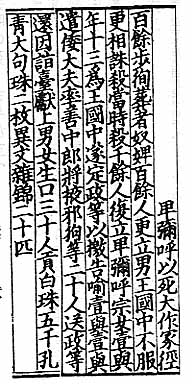 卑彌呼以死大作冢徑
百餘步徇葬者奴婢百餘人更立男王國中不服
更相誅殺當時殺千餘人復立卑彌呼宗女壹與
年十三為王國中遂定政等以檄告喻壹與壹與
遣倭大夫率善中郎將掖邪狗等二十人送政等
還因詣臺獻上男女生口三十人貢白珠五千孔
青大句珠二枚異文雜錦二十匹